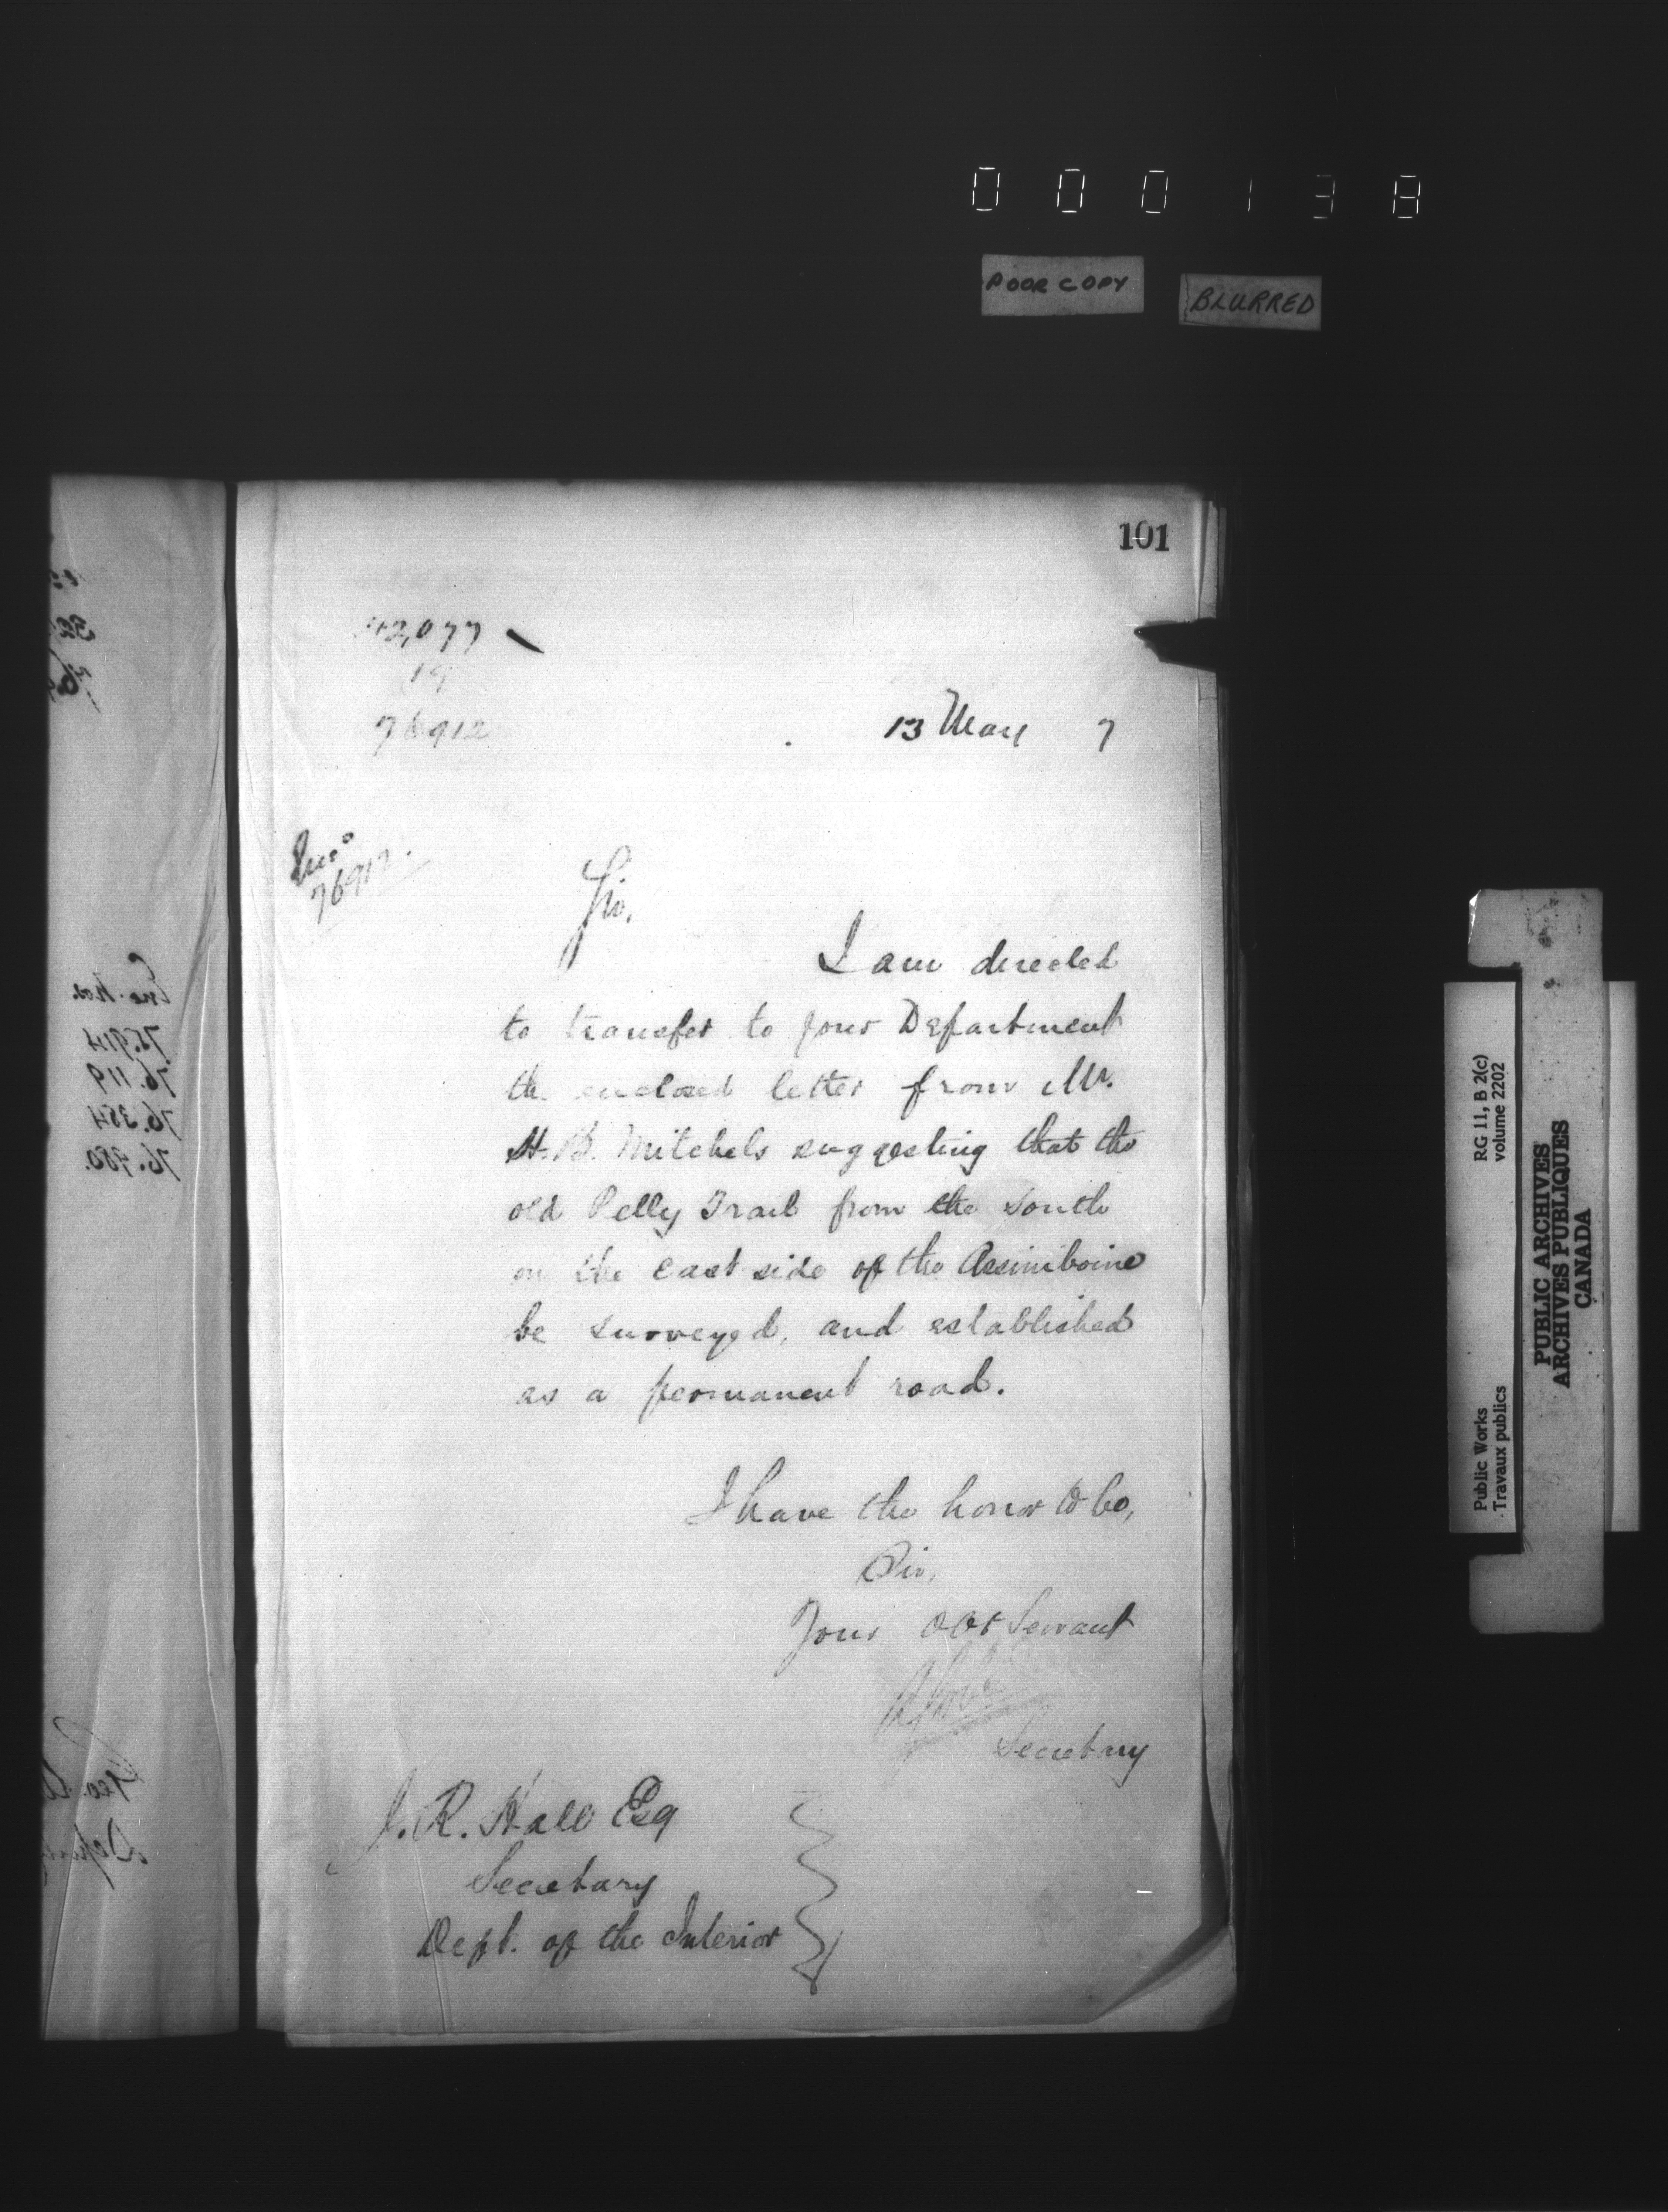 000138
POOR COPY
BLURRED
101
42,077
19
76912
13 May 7
76912.
Sir,
I am directed
to transfer to your Department
the enclosed letter from Mr.
H. B. Mitchels suggesting that the
old Pelly Trail from the South
on the east side of the Assiniboine
be surveyed, and established
as a permanent road.
I have the honor to be,
Sir,
Your Obt Servant
Secretary
J. R. Hall Esq
Secretary
Dept. of the Interior
Enc. Nos.
75.914
76.119
76.354
76.980.
RG 11, B 2(c)
volume 2202
Public Works
Travaux publics
PUBLIC ARCHIVES
ARCHIVES PUBLIQUES
CANADA